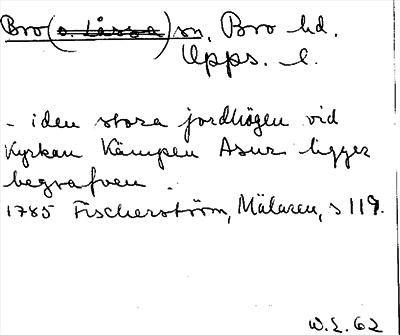 Bro (o. Låssa) sn, Bro hd.
Upps. l.
- iden stora jordhögen vid
Kyrkan Kämpen Asur ligger
begrafven.
1785 Fischerström, Mälaren, s 119.
W.L. 62